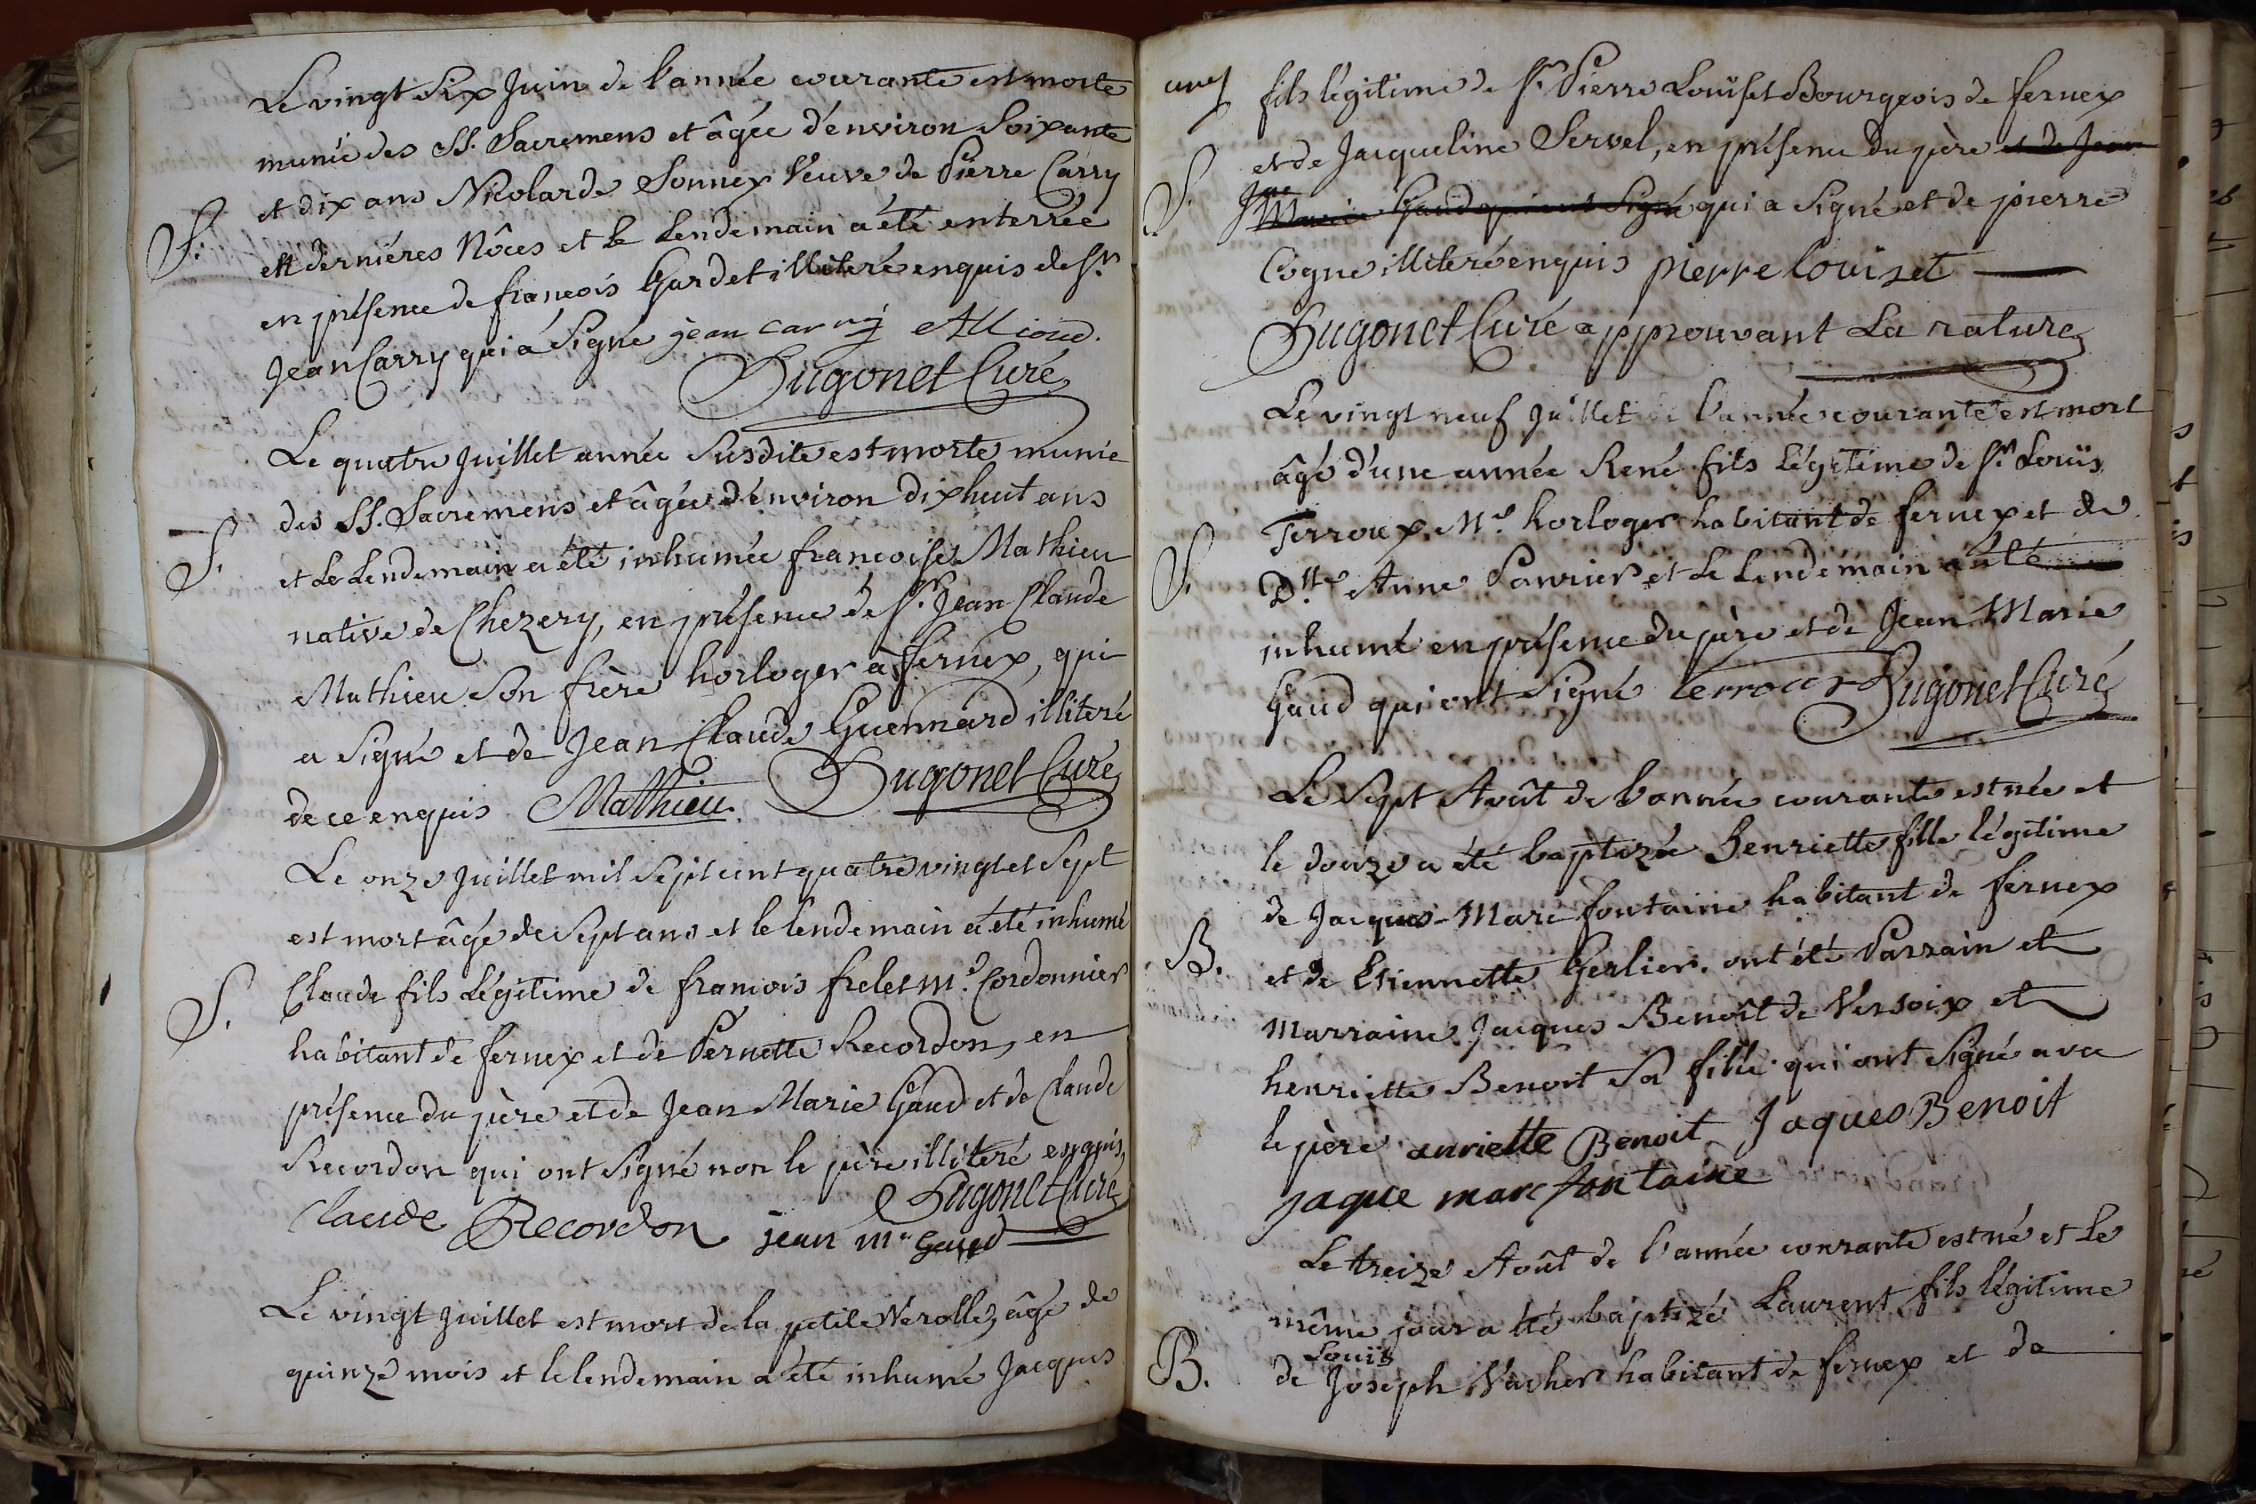 Le vingt Six Juin de l'année courante est morte
munie des SS. Sacremens et âgée d'environ Soixante
et dix ans Nicolarde Sonnex Veuve de Pierre Carry
S.
en dernières Nôces et le Lendemain a été enterrée
en présence de francois Gardet illiteré enquis de Sr
Jean Carry qui a Signé jean carry
Hugonet Curé
Le quatre Juillet année Susdite est morte munie
des SS. Sacremens et âgée d'environ dix huit ans
S.
et Le Lendemain a été inhumée francoise Mathieu
native de Chezery, en présence de Sr Jean Claude
Mathieu Son frère horloger à fernex, qui
a Signé et de Jean Claude Guennard illiteré
de ce enquis Mathieu. Hugonet Curé
Le onze Juillet mil Sept cent quatre vingt et Sept
est mort âgé de Sept ans et le lendemain a été inhumé
S.
Claude fils Légitime de francois frelet Md. Cordonnier
habitant de fernex et de Pernette Recordon, en
présence du père et de Jean Marie Gaud et de Claude
Recordon qui ont Signé non le père illiteré enquis,
Hugonet Curé
Claude Recordon jean mie Gaud
Le vingt Juillet est mort de la petite Verolle, âgé de
quinze mois et le lendemain a été inhumé Jacques
fils légitime de Sr Pierre Louiset Bourgeois de fernex
et de Jacqueline Servel, en présence du père et de Jean
S.
Marie Gaud qui ont Signé qui a Signé et de pierre
Cogne illiteré enquis pierre louiset
Hugonet Curé approuvant La rature
Le vingt neuf Juillet de l'année courante est mort
âgé d'une année René fils Légitime de Sr Louis
Terroux Md horloger habitant de fernex et de
S.
Dlle Anne Panrier et Le Lendemain a été
inhumé en présence du père et de Jean Marie
Gaud qui ont Signé Terroux Hugonet Curé
Le Sept Août de l'année courante est née et
le douze a été baptizée Henriette fille légitime
de Jacques-Marc fontaine habitant de fernex
B.
et de Etiennette Gerlier. ont été Parrain et
Marraine Jacques Benoît de Versoix et
henriette Benoit Sa fille qui ont Signé avec
le père anriette Benoit Jaques Benoit
jaque marc fontaine
Le treize Août de l'année courante est né et Le
même jour a été baptizé Laurent fils légitime
Louis
B.
de Joseph Vacher habitant de fernex et de